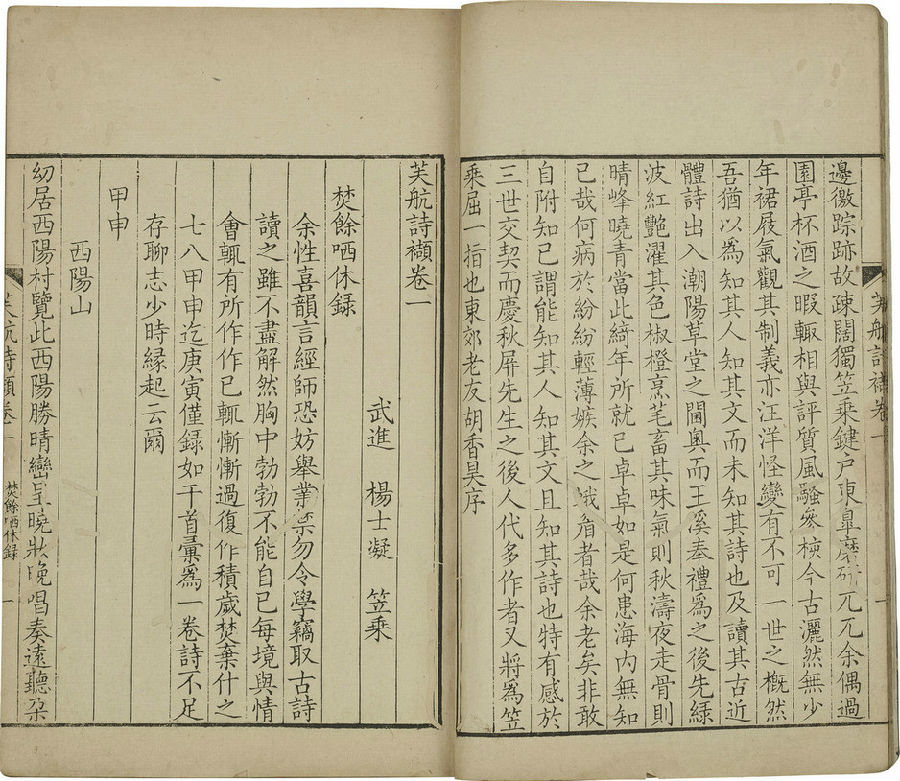 邊徼踪跡故疎闊獨笠乘鍵户東臯磨硏兀兀余偶過
園亭杯酒之暇輙相與評質風騷參檢今古灑然無少
年裙屐氣觀其制義亦汪洋怪變有不可一世之概然
吾猶以爲知其人知其文而未知其詩也及讀其古近
體詩出入潮陽草堂之閫奧而玉溪奉禮爲之後先緑
波紅艷濯其色椒橙烹芼畜其味氣則秋濤夜走骨則
晴峰曉青當此綺年所就已卓卓如是何患海内無知
已哉何病於紛紛輕薄嫉余之蛾眉者哉余老矣非敢
自附知已謂能知其人知其文且知其詩也特有感於
三世交契而慶秋屏先生之後人代多作者又將爲笠
乘屈一指也東郊老友胡香昊序
芙航詩襭卷一
芙航詩襭卷一
武進 楊士凝 笠乘
焚餘哂休録
余性喜韻言經師恐妨舉業禁勿令學竊取古詩
讀之雖不盡解然胸中勃勃不能自已每境與情
會輙有所作作已輙慚慚過復作積歲焚棄什之
七八甲申迄庚寅僅録如干首彙爲一卷詩不足
存聊志少時緣起云爾
甲申
西陽山
幼居西陽村覽此西陽勝晴巒呈曉狀晚唱奏遠聽朶
芙航詩襭卷一
焚餘哂休録
一